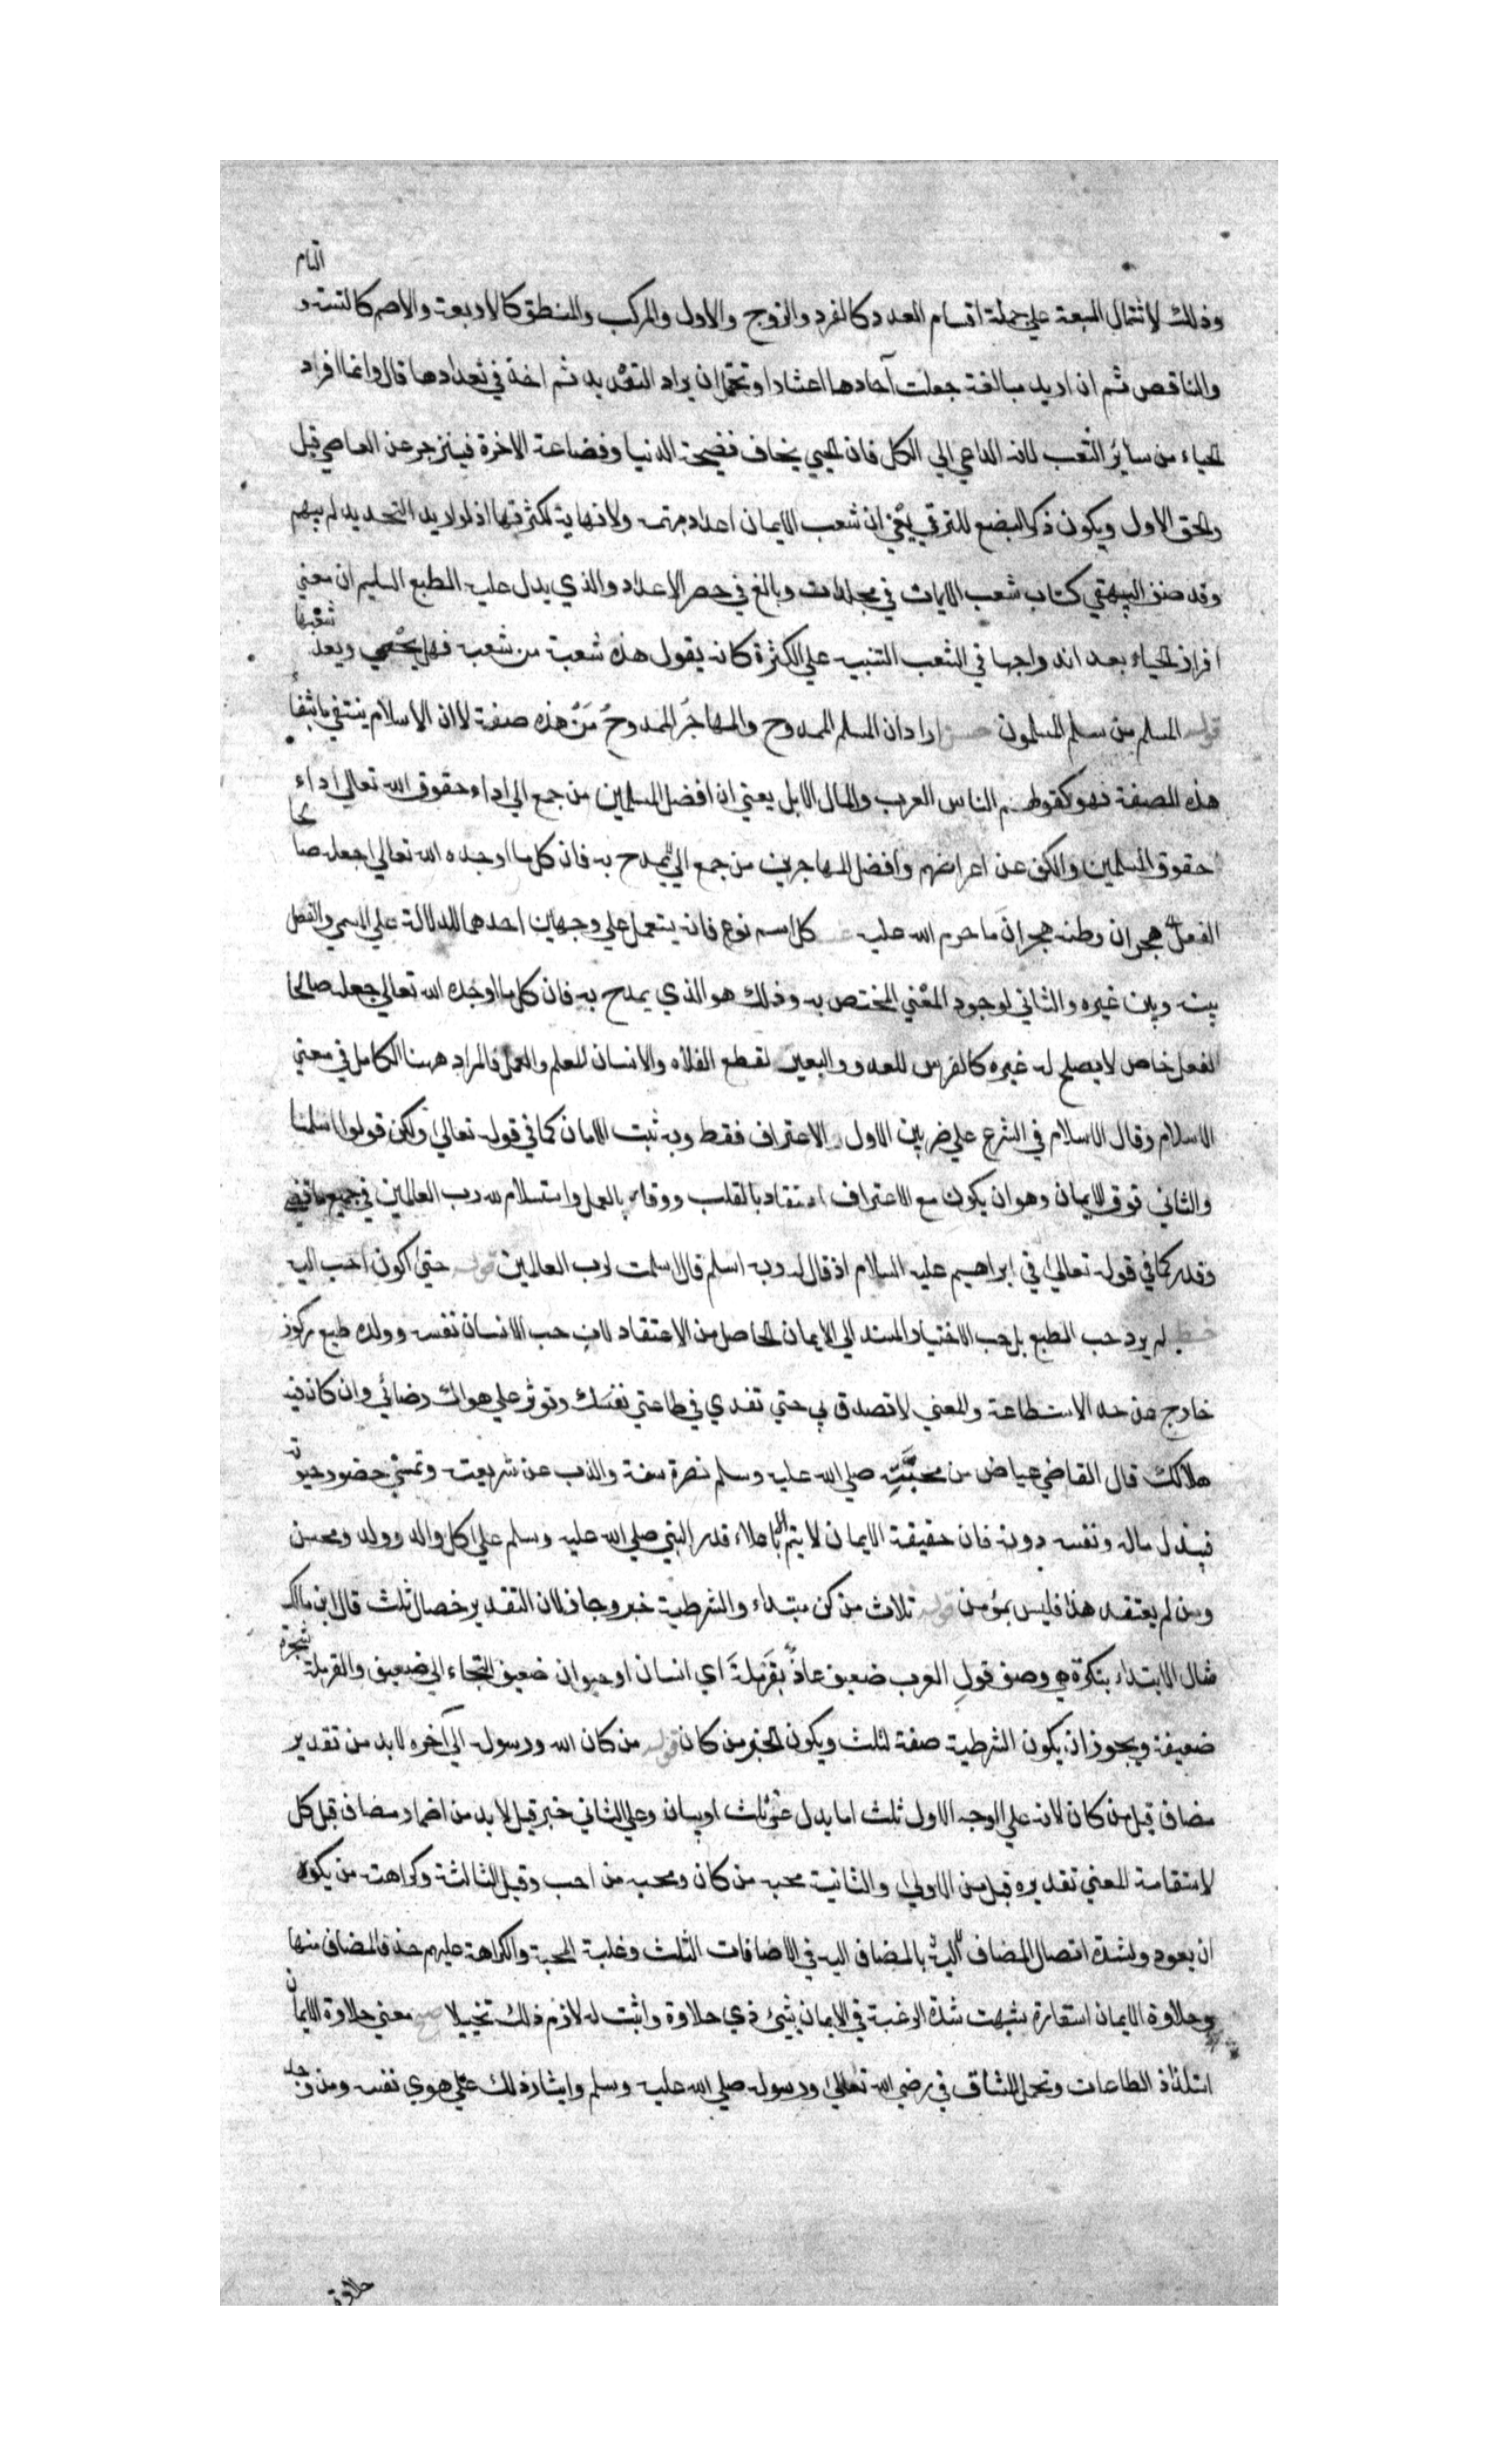 التام
وذلك لاشتمال السبعة علي جملة اقسام العدد كالفرد والزوج والاول والمركب والمنطق كالاربعة والاصم كالستة و
والناقص ثم ان اريد مبالغة جعلت آحادها اعشارا وتحتمل ان يراد التعديد ثم اخذ في تعدادها قال وانما افراد
الحياء من سائر الشعب لانه الداعي الي الكل فان الحيي يخاف فضيحة الدنيا وفضاعة الاخرة فينزجر عن المعاصي قيل
والحق الاول ويكون ذكر البضع للترقي يعني ان شعب الايمان اعداد مبهمة ولا نهاية لكثرتها اذ لو اريد التحديد لم يبهم
وقد صنف البيهقي كتاب شعب الايمان في مجلدات وبالغ في حصر الاعداد والذي يدل عليه الطبع السليم ان معني
افراد الحياء بعد اندراجها في الشعب التنبيه علي الكثرة كانه يقول هذه شعبة من شعبه فهل يحصي ويعد شعبها
قوله المسلم من سلم المسلمون اراد ان المسلم الممدوح والمهاجر الممدوح من هذه صفته لا ان الاسلام ينتفي بانتفا
هذه الصفة فهو كقولهم الناس العرب والمال الابل يعني ان افضل المسلمين من جمع الي اداء حقوق الله تعالي اداء
حقوق المسلمين والكف عن اعراضهم وافضل المهاجرين من جمع الي يمدح به فان كل ما اوجده الله تعالي جعله صالحا
الفعل هجران وطنه هجران ما حرم الله عليه كل اسم نوع فانه يستعمل علي وجهين احدهما للدلالة علي المسمي والفصل
بينه وبين غيره والثاني لوجود المعني المختص به وذلك هو الذي يمدح به فان كل ما اوجده الله تعالي جعله صالحا
لفعل خاص لا يصلح له غيره كالفرس للعدو والبعير لقطع الفلاة والانسان للعلم والعمل فالمراد ههنا الكامل في معني
الاسلام وقال الاسلام في الشرع علي ضربين الاول الاعتراف فقط وبه ثبت الامان كما في قوله تعالي ولكن قولوا اسلمنا
والثاني فوق الايمان وهو ان يكون مع الاعتراف اعتقاد بالقلب ووفاء بالعمل واستسلام لله رب العالمين في جميع ما قضي
وقدر كما في قوله تعالي في ابراهيم عليه السلام اذ قال له ربه اسلم قال اسلمت لرب العالمين قوله حتي اكون احب اليه
خط لم يرد حب الطبع بل حب الاختيار المستند الي الايمان الحاصل من الاعتقاد لان حب الانسان نفسه وولده طبع مركوز
خارج عن حد الاستطاعة والمعني لا تصدق بي حتي تفدي في طاعتي نفسك وتوثر علي هواك رضائي وان كان فيه
هلاكك قال القاضي عياض من محبته صلي الله عليه وسلم نصرة سنة والذب عن شريعته وتمني حضور حيوته
فيبذل ماله ونفسه دونه فان حقيقة الايمان لا يتم الا باعلاء قدر النبي صلي الله عليه وسلم علي كل والد وولد ومحسن
ومن لم يعتقد هذا فليس بمؤمن قوله ثلاث من كن مبتداء والشرطية خبر وجاز لان التقدير خصال ثلث قال ابن مالك
مثال الابتداء بنكرة هي وصف قول العرب ضعيف عاذ بقرملة اي انسان او حيوان ضعيف التجاء الي ضعيف والقرملة شجرة
ضعيفة ويجوز ان يكون الشرطية صفة لثلث ويكون الخبر من كان قوله من كان الله ورسوله الي آخره لا بد من تقدير
مضاف قبل من كان لانه علي الوجه الاول ثلث اما بدل عن ثلث او بيان وعلي الثاني خبر قيل لا بد من اضمار مضاف قبل كل
لاستقامة المعني تقديره قبل من الاولي والثانية محبة من كان ومحبة من احب وقبل الثالثة وكراهته من يكره
ان يعود ولشدة اتصال المضاف اليه بالمضاف اليه في الاضافات الثلث وغلبة المحبة والكراهة عليهم حذف المضاف منها
وحلاوة الايمان استعارة شبهت شدة الرغبة في الايمان بشيئ ذي حلاوة واثبت له لازم ذلك تخييلا معني حلاوة الايمان
استلذاذ الطاعات وتحمل المشاق في رضي الله تعالي ورسوله صلي الله عليه وسلم وايثار ذلك علي هوي نفسه ومن وجد
حلاوة